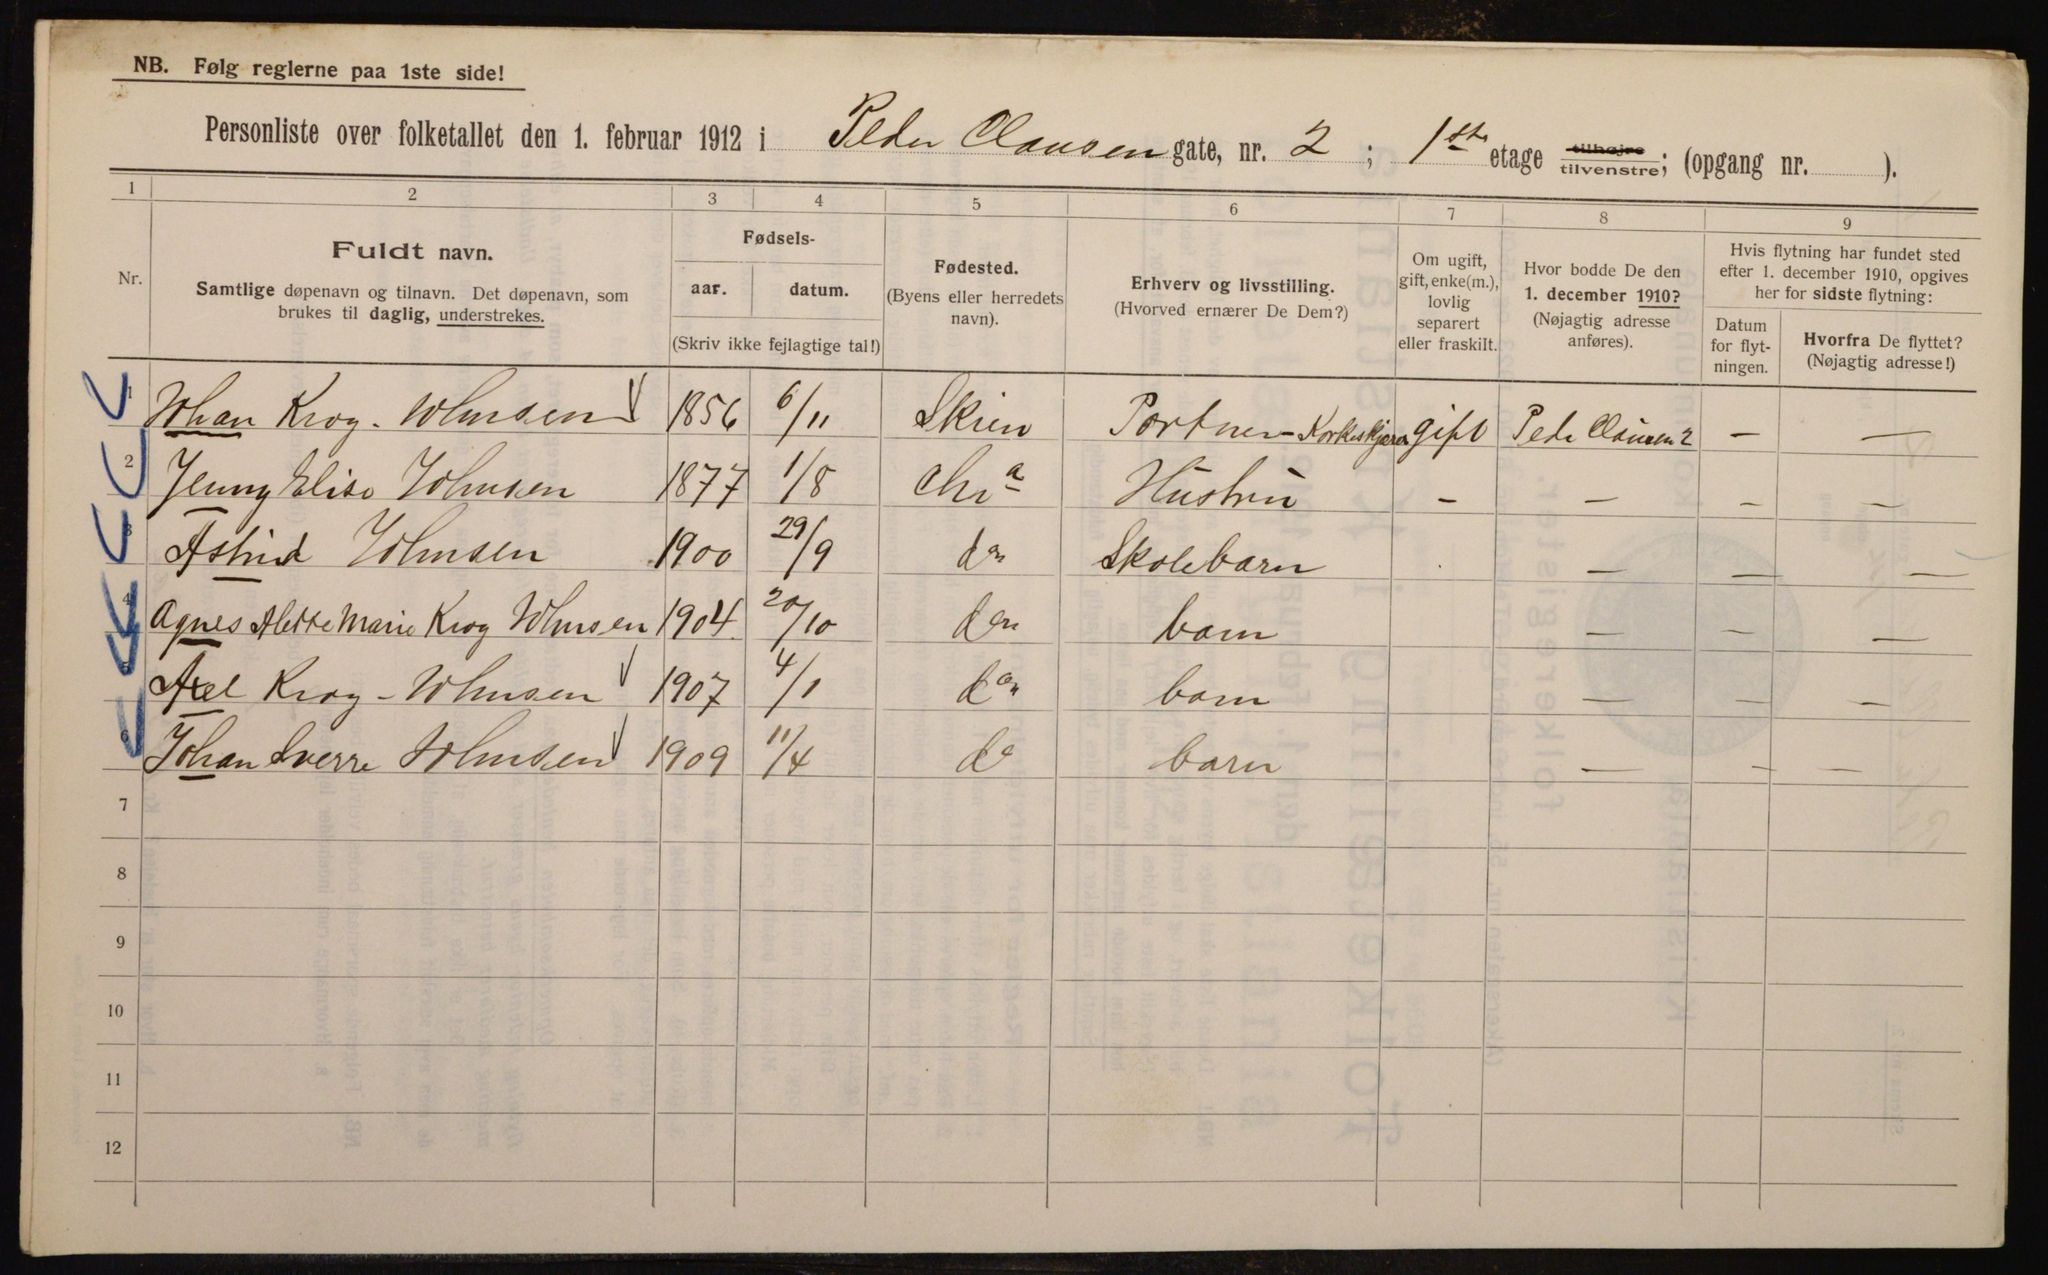 NB. Følg reglerne paa 1ste side!
Personliste over folketallet den 1. februar 1912 i Peder Clausen gate, nr. 2 ; 1ste etage tilhøjre tilvenstre; (opgang nr. ).
1 2 3 4 5 6 7 8 9
Nr.
Fuldt navn.
Samtlige døpenavn og tilnavn. Det døpenavn, som
brukes til daglig, understrekes.
Fødsels-
aar. datum.
(Skriv ikke fejlagtige tal!)
Fødested.
(Byens eller herredets
navn).
Erhverv og livsstilling.
(Hvorved ernærer De Dem?)
Om ugift,
gift, enke(m.),
lovlig
separert
eller fraskilt.
Hvor bodde De den
1. december 1910?
(Nøjagtig adresse
anføres).
Hvis flytning har fundet sted
efter 1. december 1910, opgives
her for sidste flytning:
Datum
for flyt-
ningen.
Hvorfra De flyttet?
(Nøjagtig adresse!)
1 Johan Krog-Johnsen 1856 6/11 Skien Portner- Korkeskjærer gift Pede Clausen 2 — —
2 Jenny Elise Johnsen 1877 1/8 Chra Hustru — — — —
3 Astrid Johnsen 1900 29/9 do Skolebarn — — —
4 Agnes Alette Marie Krog Johnsen 1904 20/10 do barn — — —
5 Axel Krog-Johnsen 1907 4/1 do barn — — —
6 Johan Sverre Johnsen 1909 11/4 do barn — — —
7
8
9
10
11
12